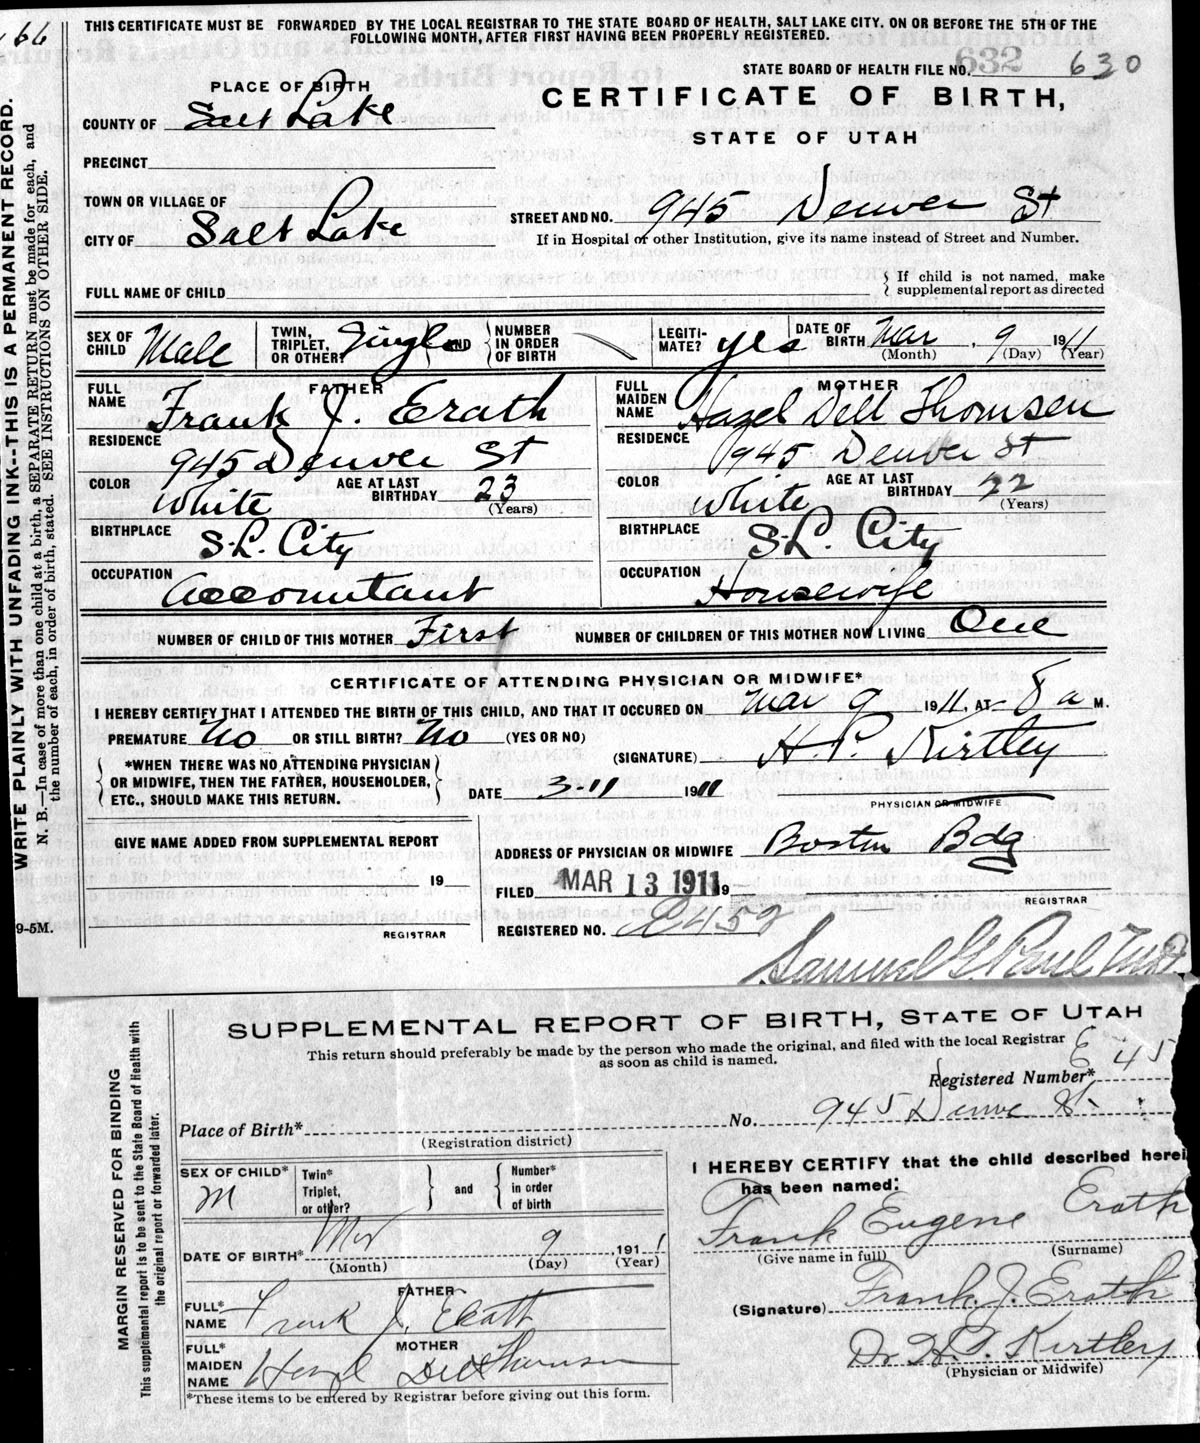 66
THIS CERTIFICATE MUST BE FORWARDED BY THE LOCAL REGISTRAR TO THE STATE BOARD OF HEALTH, SALT LAKE CITY. ON OR BEFORE THE 5TH OF THE
FOLLOWING MONTH, AFTER FIRST HAVING BEEN PROPERLY REGISTERED.
STATE BOARD OF HEALTH FILE NO. 632 630
WRITE PLAINLY WITH UNFADING INK--THIS IS A PERMANENT RECORD.
N. B.—In case of more than one child at a birth, a SEPARATE RETURN must be made for each, and
the number of each, in order of birth, stated. SEE INSTRUCTIONS ON OTHER SIDE.
PLACE OF BIRTH
COUNTY OF Salt Lake
CERTIFICATE OF BIRTH,
STATE OF UTAH
PRECINCT
TOWN OR VILLAGE OF
CITY OF Salt Lake
STREET AND NO. 945 Denver St
If in Hospital or other Institution, give its name instead of Street and Number.
FULL NAME OF CHILD
If child is not named, make
supplemental report as directed
SEX OF CHILD Male
TWIN, TRIPLET, OR OTHER? Single AND
NUMBER IN ORDER OF BIRTH
LEGITI-MATE? yes
DATE OF BIRTH Mar 9 1911
(Month) (Day) (Year)
FATHER
FULL NAME Frank J. Erath
RESIDENCE 945 Denver St
COLOR White AGE AT LAST BIRTHDAY 23 (Years)
BIRTHPLACE S.L. City
OCCUPATION Accountant
MOTHER
FULL MAIDEN NAME Hazel Dell Thomsen
RESIDENCE 945 Denver St
COLOR White AGE AT LAST BIRTHDAY 22 (Years)
BIRTHPLACE S.L. City
OCCUPATION Housewife
NUMBER OF CHILD OF THIS MOTHER First NUMBER OF CHILDREN OF THIS MOTHER NOW LIVING One
CERTIFICATE OF ATTENDING PHYSICIAN OR MIDWIFE*
I HEREBY CERTIFY THAT I ATTENDED THE BIRTH OF THIS CHILD, AND THAT IT OCCURED ON Mar 9 1911, AT 8 a M.
PREMATURE No OR STILL BIRTH? No (YES OR NO)
(SIGNATURE) H. P. Kirtley
*WHEN THERE WAS NO ATTENDING PHYSICIAN
OR MIDWIFE, THEN THE FATHER, HOUSEHOLDER,
ETC., SHOULD MAKE THIS RETURN.
DATE 3-11 1911
PHYSICIAN OR MIDWIFE
GIVE NAME ADDED FROM SUPPLEMENTAL REPORT
19
REGISTRAR
9-5M.
ADDRESS OF PHYSICIAN OR MIDWIFE Boston Bdg
FILED MAR 13 1911 19
REGISTRAR
REGISTERED NO. E452
Samuel G. Paul
SUPPLEMENTAL REPORT OF BIRTH, STATE OF UTAH
This return should preferably be made by the person who made the original, and filed with the local Registrar
as soon as child is named.
MARGIN RESERVED FOR BINDING
This supplemental report is to be sent to the State Board of Health with
the original report or forwarded later.
Registered Number* E 45
Place of Birth* No. 945 Denver St
(Registration district)
SEX OF CHILD* M
Twin* Triplet, or other? and Number* in order of birth
DATE OF BIRTH* Mar 9, 1911
(Month) (Day) (Year)
FATHER
FULL* NAME Frank J. Erath
MOTHER
FULL* MAIDEN NAME Hazel Dell Thomsen
*These items to be entered by Registrar before giving out this form.
I HEREBY CERTIFY that the child described herei
has been named:
Frank Eugene Erath
(Give name in full) (Surname)
(Signature) Frank J. Erath
Dr H. P. Kirtley
(Physician or Midwife)